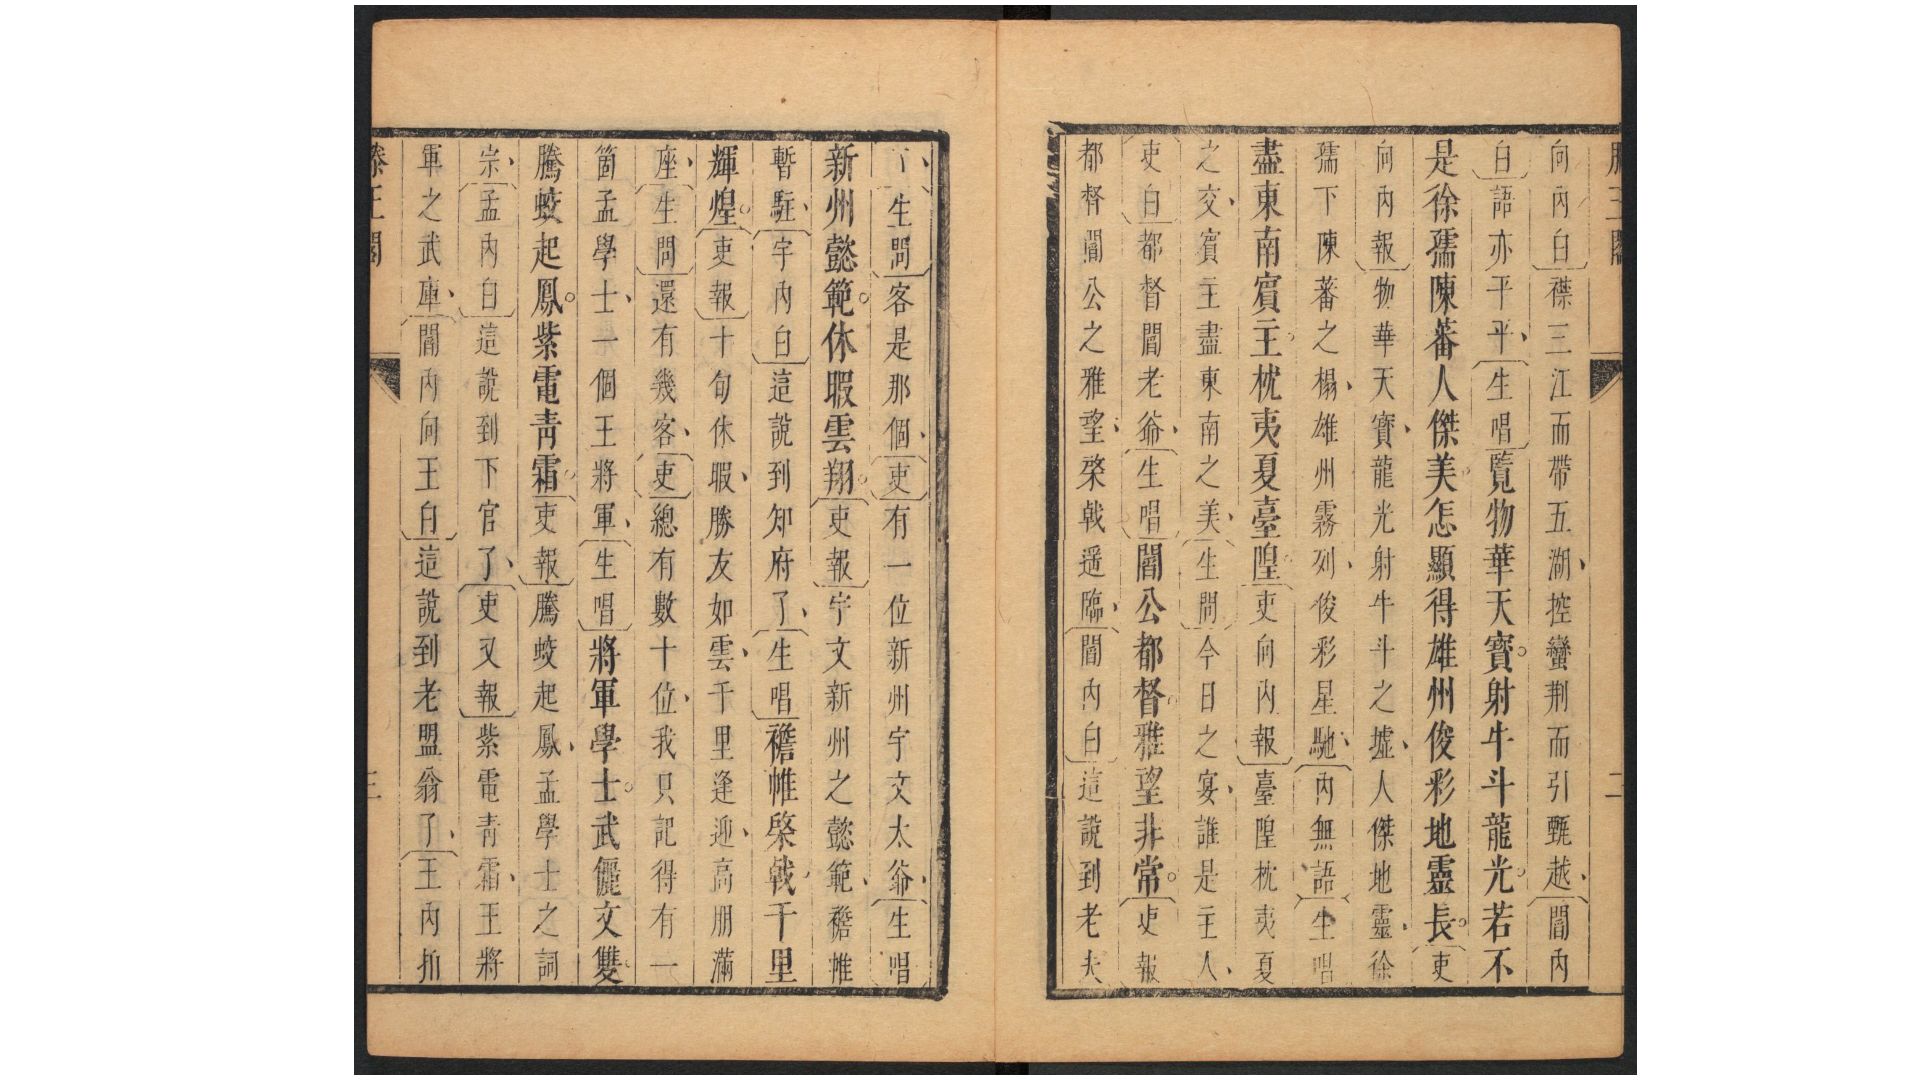 滕王閣
二
向內白襟三江而帶五湖控蠻荆而引甌越閻內
白語亦平平生唱覽物華天寶射牛斗龍光若不
是徐孺陳蕃人傑美怎顯得雄州俊彩地靈長吏
向內報物華天寶龍光射牛斗之墟人傑地靈徐
孺下陳蕃之榻雄州霧列俊彩星馳內無語生唱
盡東南賓主枕夷夏臺隍吏向內報臺隍枕夷夏
之交賓主盡東南之美生問今日之宴誰是主人
吏白都督閻老爺生唱閻公都督雅望非常吏報
都督閻公之雅望棨戟遥臨閻內白這說到老夫
了生問客是那個吏有一位新州宇文太爺生唱
新州懿範休暇雲翔吏報宇文新州之懿範襜帷
暫駐宇內白這說到知府了生唱襜帷棨戟千里
輝煌吏報十旬休暇勝友如雲千里逢迎高朋滿
座生問還有幾客吏總有數十位我只記得有一
箇孟學士一個王將軍生唱將軍學士武儷文雙
騰蛟起鳳紫電靑霜吏報騰蛟起鳳孟學士之詞
宗孟內白這說到下官了吏又報紫電靑霜王將
軍之武庫閻內向王白這說到老盟翁了王內拍
滕王閣
三